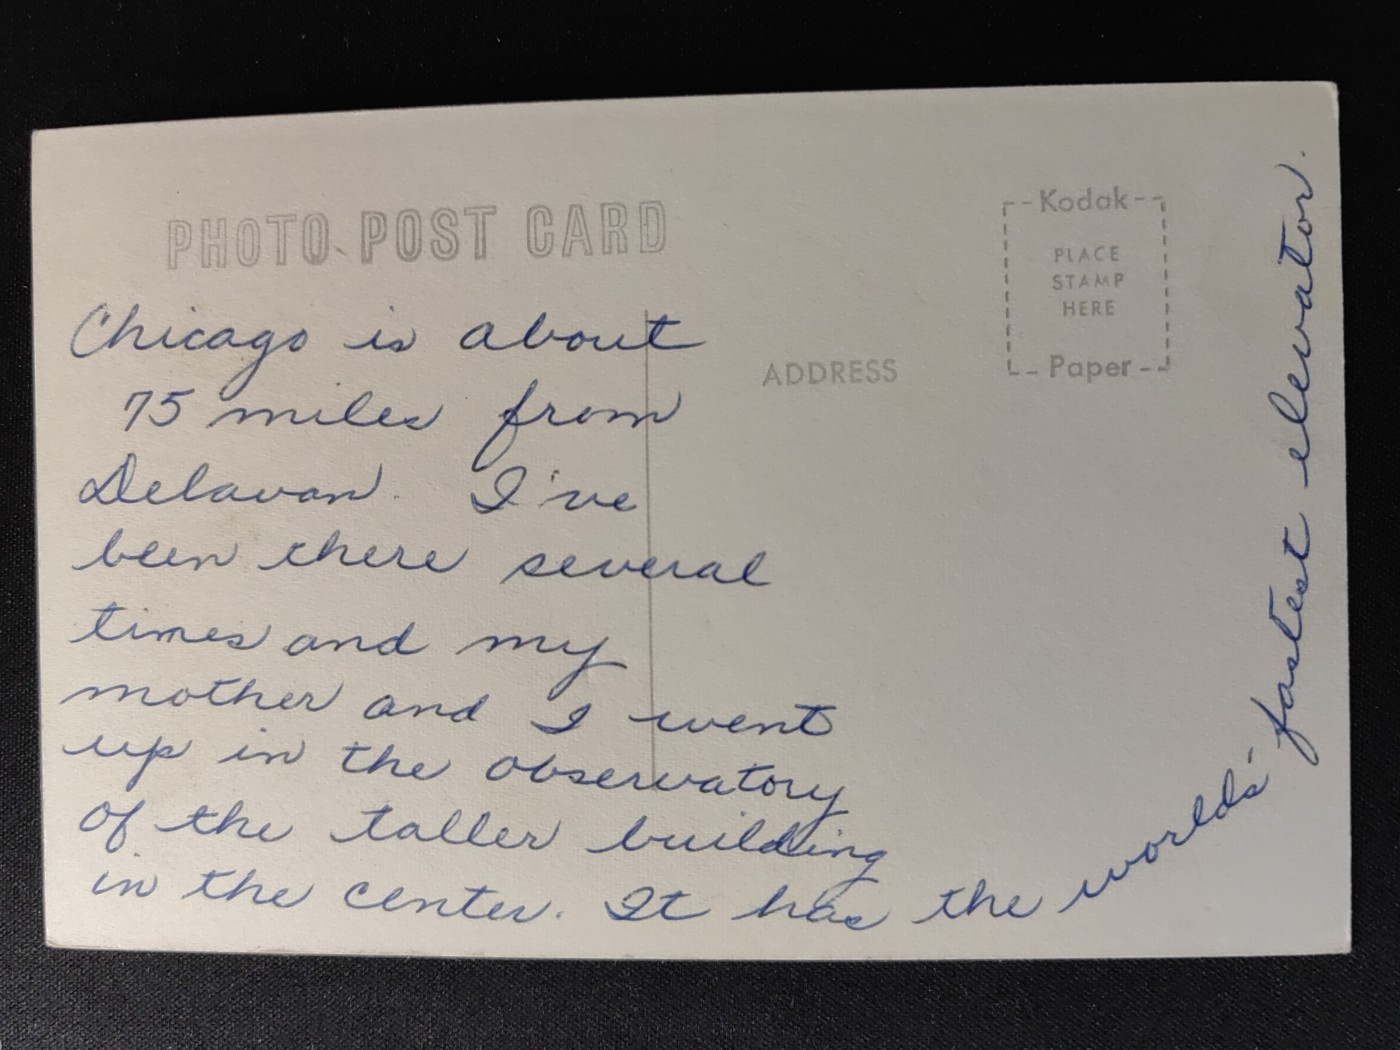 PHOTO POST CARD
Kodak
PLACE
STAMP
HERE
Paper
ADDRESS
Chicago is about
75 miles from
Delavan. I've
been there several
times and my
mother and I went
up in the observatory
of the taller building
in the center. It has the worlds' fastest elevator.